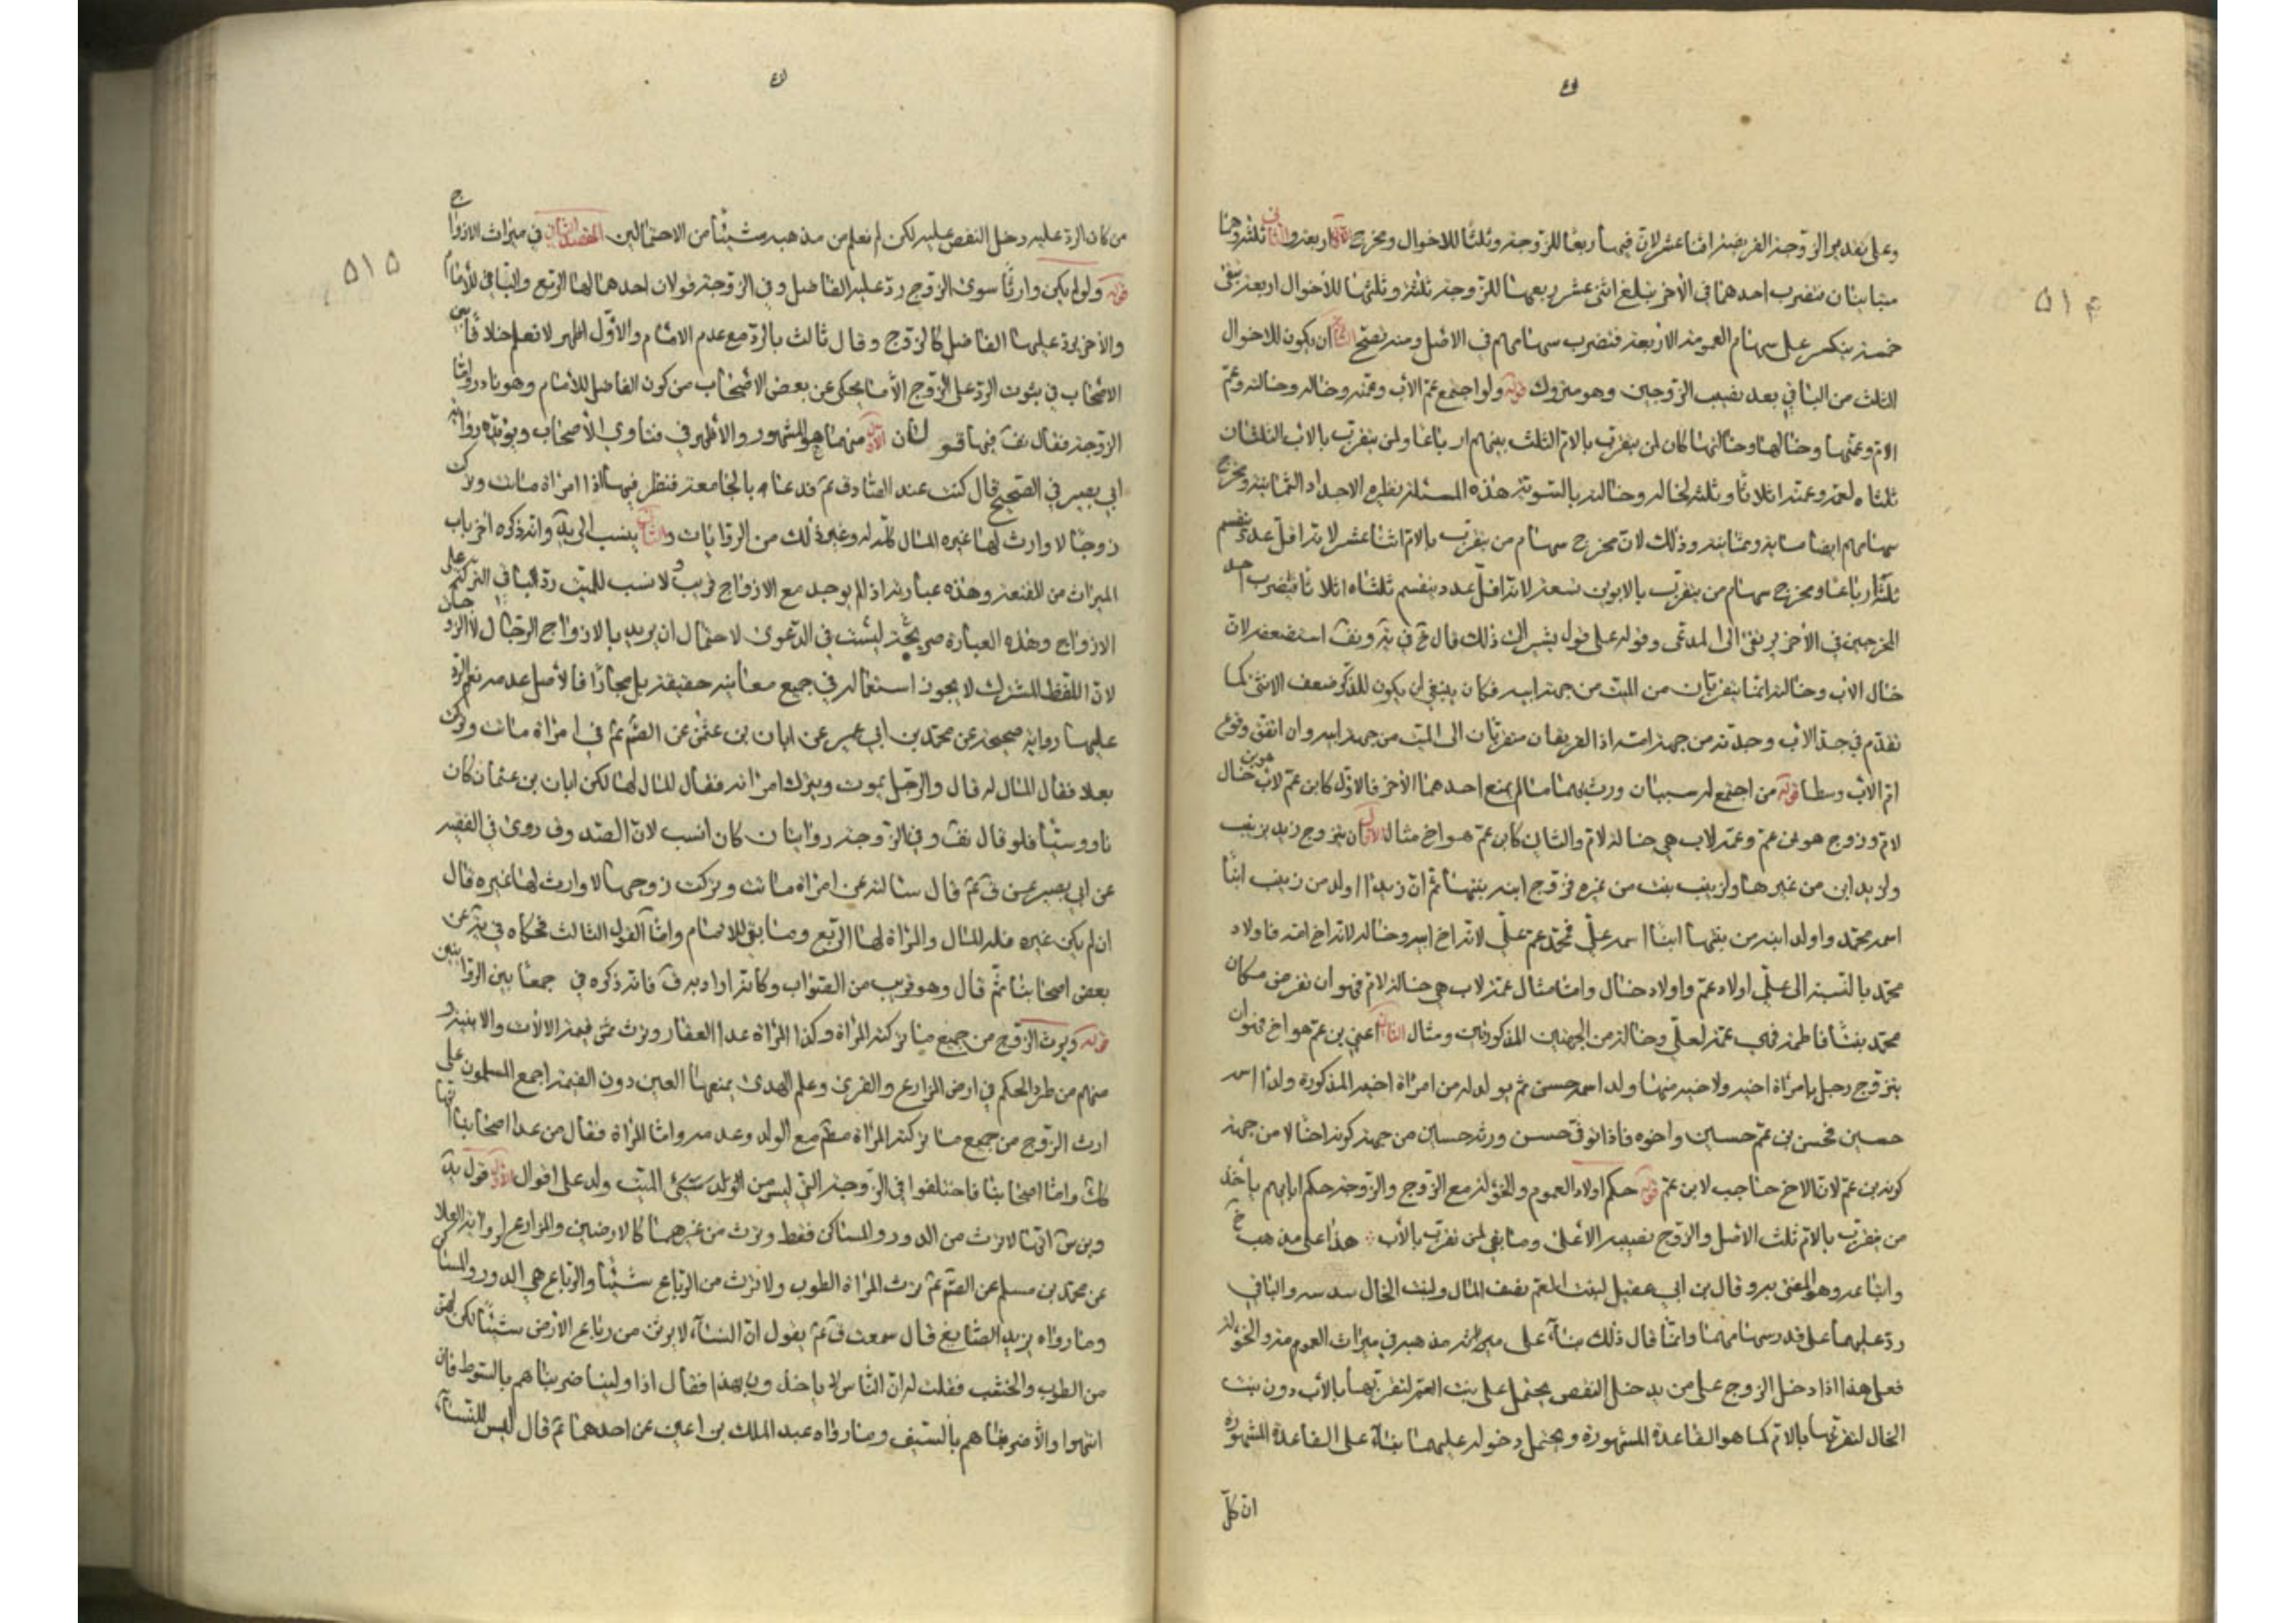 وعلى تقدير الزوجة الفريضة اثنا عشر لان فيها ربعا للزوجة وثلثا للاخوال ومخرج الاول اربعة والثاني ثلثة وهما
متباينان فتضرب احدهما في الاخر يبلغ اثنى عشر ربعها للزوجة ثلثة وثلثها للاخوال اربعة يبقى
خمسة ينكسر على سهام العمومة الاربعة فتضرب سهامهم في الاصل ومنه تصح ان يكون للاخوال
الثلث من الباقي بعد نصيب الزوجين وهو متروك قوله ولو اجتمع عم الاب وعمته وخاله وخالته وعم
الام وعمتها وخالها وخالتها كان لمن يتقرب بالام الثلث بينهم ارباعا ولمن يتقرب بالاب الثلثان
ثلثاه لعمه وعمته اثلاثا وثلثه لخاله وخالته بالسوية هذه المسئلة نظيره الاجداد الثمانية ومخرج
سهامهم ايضا مائة وثمانية وذلك لان مخرج سهام من يتقرب بالام اثنا عشر لانه اقل عدد ينقسم
ثلثه ارباعا ومخرج سهام من يتقرب بالابوين تسعة لانه اقل عدد ينقسم ثلثاه اثلاثا فتضرب احد
المخرجين في الاخر يرتقى الى المدعى وقوله على قول يشير الى ذلك قال في واستضعفه لان
خال الاب وخالته انما يتقربان من الميت من جهة ابيه فكان ينبغي ان يكون للذكر ضعف الانثى كما
تقدم في جد الاب وجدته من جهة امه اذ الفريقان متقربان الى الميت من جهة ابيه وان اتفق وقوع
ام الاب وسطا قوله من اجتمع له سببان ورث بهما ما لم يمنع احدهما الاخر فالاول كابن عم لاب هو ابن خال
لام وزوج هو ابن عم وعمة لاب هي خالة لام والثاني كابن عم هو اخ مثال الاول ان يتزوج زيد بزينب
ولزيد ابن من غيرها ولزينب بنت من غيره فزوج ابنه بنتها ثم ان زيدا اولد من زينب ابنا
اسمه محمد واولد ابنه من بنتها ابنا اسمه علي فمحمد عم علي لانه اخ ابيه وخاله لانه اخ امه فاولاد
محمد بالنسبة الى علي اولاد عم واولاد خال واما مثال عمة لاب هي خالة لام فهو ان نفرض مكان
محمد بنتا فاطمة فهي عمة لعلي وخالة من الجهتين المذكورتين ومثال الثاني اعني ابن عم هو اخ فهو ان
يتزوج رجل بامراة اخيه ولاخيه منها ولد اسمه حسن ثم يولد له من امراة اخيه المذكورة ولد اسمه
حسين فحسن ابن عم حسين واخوه فاذا توفى حسن ورثه حسين من جهة كونه اخا لا من جهة
كونه ابن عم لان الاخ حاجب لابن عم قوله حكم اولاد العموم والخؤلة مع الزوج والزوجة حكم ابائهم ياخذ
من يتقرب بالام ثلث الاصل والزوج نصيبه الاعلى وما بقي لمن تقرب بالاب هذا على مذهب
واتباعه وهو المفتى به وقال ابن ابي عقيل لبنت العم نصف المال ولبنت الخال سدسه والباقي
رد عليهما على قدر سهامهما وانما قال ذلك بناء على مذهبه في ميراث العمومة والخؤلة
فعلى هذا اذا دخل الزوج على من يدخل النقص يحتمل على بنت العم لتقربها بالاب دون بنت
الخال لتقربها بالام كما هو القاعدة المشهورة ويحتمل دخوله عليهما بناء على القاعدة المشهورة
ان كل
٥١٤
من كان الرد عليه دخل النقص عليه لكن لم نعلم من مذهبه شيئا من الاحتمالين المقصد الثاني في ميراث الازواج
قوله ولو لم يكن وارثا سوى الزوج رد عليه الفاضل وفي الزوجة قولان احدهما لها الربع والباقي للامام
والاخر يرد عليها الفاضل كالزوج وقال ثالث بالرد مع عدم الامام والاول اظهر لا نعلم خلافا بين
الاصحاب في ثبوت الرد على الزوج الا ما يحكى عن بعض الاصحاب من كون الفاضل للامام وهو نادر واما
الزوجة فقال فيها قولان الاول منهما هو المشهور والاظهر في فتاوي الاصحاب ويؤيده رواية
ابي بصير في الصحيح قال كنت عند الصادق ع قد دعا بالجامعة فنظر فيها اذا امراة ماتت وتركت
زوجا لا وارث لها غيره المال كله له وغير ذلك من الروايات والثاني ينسب الى وانه ذكره اخر باب
الميراث من المقنعة وهذه عبارته اذا لم يوجد مع الازواج قريب ولا نسب للميت رد الباقي التركة على
الازواج وهذه العبارة صريحة ليست في الدعوى لاحتمال ان يريد بالازواج الرجال لا الزوجات
لان اللفظ المشترك لا يجوز استعماله في جميع معانيه حقيقة بل مجازا فالاصل عدمه نعم الرد
عليها رواية صحيحة عن محمد بن ابي عمير عن ابان بن عثمن عن الصم ع في امراة ماتت وتركت
بعلا فقال المال له قال والرجل يموت ويترك امراته فقال المال لها لكن ابان بن عثمان كان
ناووسيا فلو قال وفي الزوجة روايتان كان انسب لان الصدوق روى في الفقيه
عن ابي بصير عن ق ع قال سالته عن امراة ماتت وتركت زوجها لا وارث لها غيره قال
ان لم يكن غيره فله المال والمراة لها الربع وما بقي للامام واما القول الثالث فحكاه في عن
بعض اصحابنا ثم قال وهو قريب من الصواب وكانه اراد به ق فانه ذكره في جمعا بين الروايتين
قوله ويرث الزوج من جميع ما تركته المراة وكذا المراة عدا العقار وترث من قيمة الالات والابنية و
منهم من طرد الحكم في ارض المزارع والقرى وعلم الهدى يمنعها العين دون القيمة اجمع المسلمون على
ارث الزوج من جميع ما تركته المراة مع الولد وعدمه واما المراة فقال من عدا اصحابنا انها
كك واما اصحابنا فاختلفوا في الزوجة التي ليس من الميت ولد على اقوال الاول قول
انها لا ترث من الدور والمساكن فقط وترث من غيرهما كالارضين والمزارع لرواية العلا
عن محمد بن مسلم عن الصم ع ترث المراة الطوب ولا ترث من الرباع شيئا والرباع هي الدور والمساكن
وما رواه يزيد الصايغ قال سمعت ق ع يقول ان النساء لا يرثن من رباع الارض شيئا لكن لهن
من الطوب والخشب فقلت له ان الناس لا ياخذون بهذا فقال اذا ولينا ضربناهم بالسوط فان
انتهوا والا ضربناهم بالسيف وما رواه عبد الملك بن اعين عن احدهما ع قال ليس للنساء
٥١٥